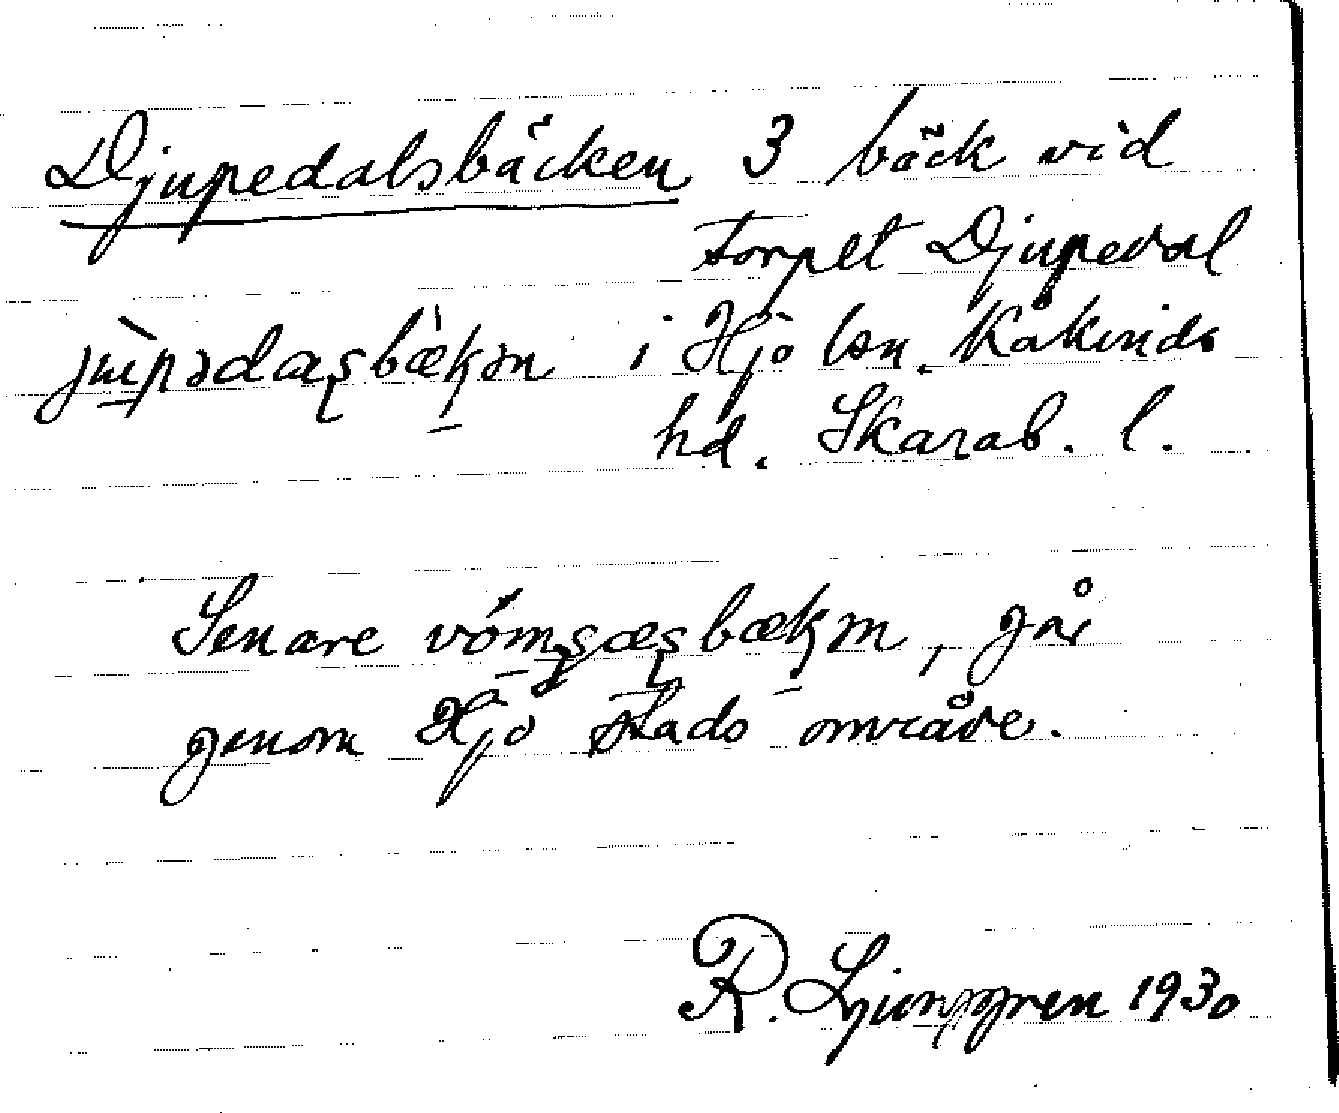 Djupedalsbäcken 3 bäck vid
torpet Djupedal
i Hjo lsn. Kåkinds
hd. Skarab. l.
Senare går
genom Hjo stads område.
R. Ljunggren 1930